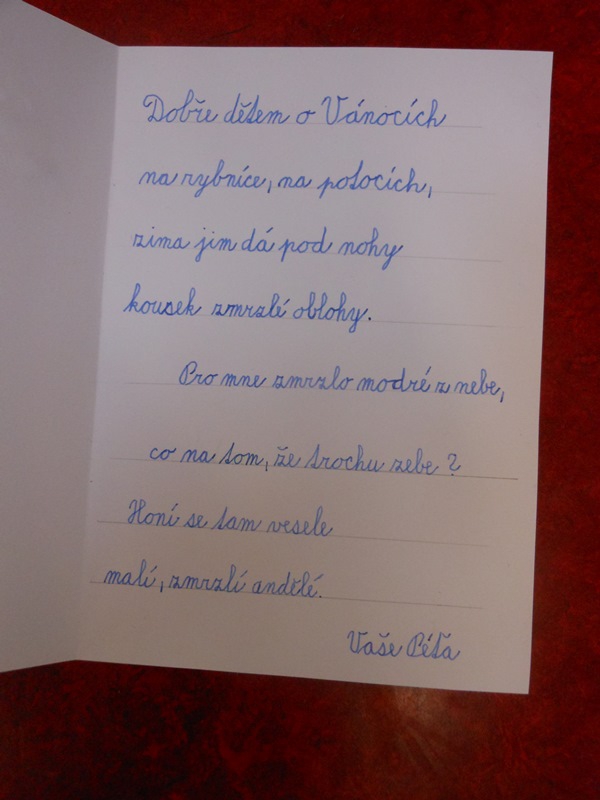 Dobře dětem o Vánocích
na rybníce, na potocích,
zima jim dá pod nohy
kousek zmrzlé oblohy.
Pro mne zmrzlo modré z nebe,
co na tom, že trochu zebe?
Honí se tam vesele
malí, zmrzlí andělé.
Vaše Péťa